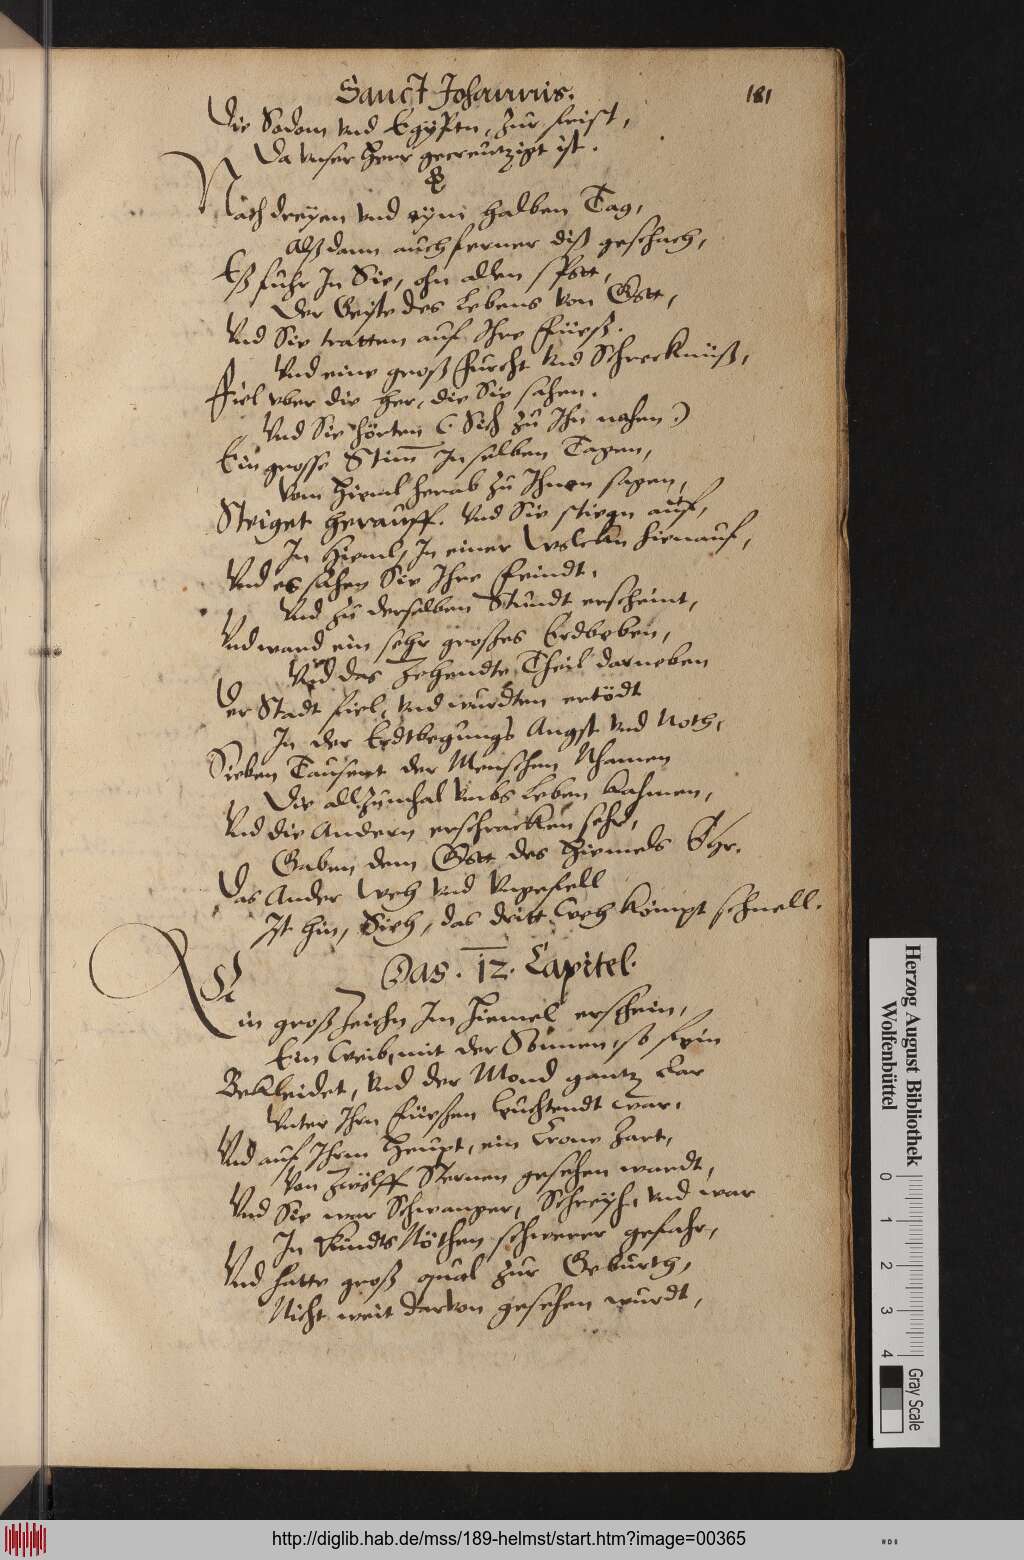 Sanct Johannis.
181
Die Sodom vnd Egypten, zur frist,
Da vnser Herr gecreutzigt ist.
Nach dreyen vnd eyni halben Tag,
Alß dann auch ferner diß geschach,
Eß fuhr In Sie, ohn allen spott,
Der Geist des Lebens von Gott,
Vnd Sie tratten auf Ihre Füeß.
Vnd eine groß Furcht vnd Schrecknüß,
Fiel vber die her, die Sie sahen.
Vnd Sie hörten (Sich zu Ihn nahen)
Ein grosse Stim In selben Tagen,
Vom Hieml herab zu Ihnen sagen,
Steiget herauff. Vnd Sie stiegn auf,
In Hieml, In einer Wolckn hienauf,
Vnd es sahen Sie Ihre Feindt.
Vnd zu derselben Stundt erscheint,
Vnd ward ein sehr großes Erdbeben,
Vnd das Zehendte Theil darneben
Der Stadt fiel, vnd wurdten ertödt
In der Erdtbegungs Angst vnd Noth,
Sieben Tausent der Menschen Nhamen
Die allzumhal vmbs Leben kahmen,
Vnd die Andern erschracken sehr,
Gaben dem Gott des Hiemels Ehr.
Das Ander Weh vnd Vngefell
Ist hin, Sieh, das dritt Weh kömpt schnell.
Das. 12. Capitel.
Ein groß Zeichn Im Hiemel erschein,
Ein Weib, mit der Sonnen, so fein
Bekleidet, vnd der Mond gantz clar
Vnter Ihrn Füeßen leuchtendt war.
Vnd auf Ihrm Heupt, ein Crone Zart,
Von Zwölff Sternen gesehen wardt,
Vnd Sie war Schwanger, Schreyh, vnd war
In Kindts Nöthen schwerer gefahr,
Vnd hatte groß qual zur Geburth,
Nicht weit darvon gesehen wurdt,
Herzog August Bibliothek
Wolfenbüttel
0 1 2 3 4
Gray Scale
http://diglib.hab.de/mss/189-helmst/start.htm?image=00365